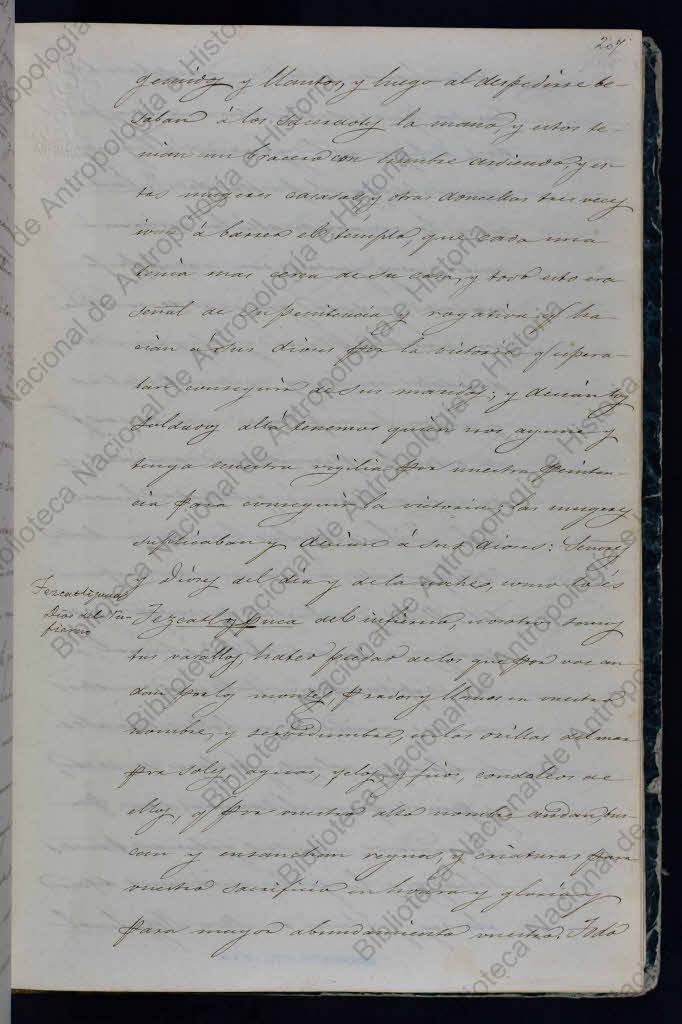 207
gemidos y llantos, y luego al despedirse be-
saban á los sacerdotes la mano, y estos te-
nian un bracero con lumbre ardiendo, y es-
tas mugeres casadas, y otras doncellas tres veces
iban á barrer el templo, que cada una
tenia mas cerca de su casa, y todo esto era
señal de penitencia y rogativa q! ha-
cian á sus dioses por la victoria q! espera-
ban conseguir de sus maridos; y decian los
soldados allá tenemos quien nos ayune y
tenga vigilia por nuestra peniten-
cia para conseguir la victoria; las mugeres
suplicaban y decian á sus dioses: Señores
y dioses del dia y de la noche, como lo és
Tezcatlypuca del infierno, nosotros somos
tus vasallos, habed piedad de los que por vos an-
dan por los montes, prados y llanos en vuestro
nombre, y servidumbre, en las orillas del mar
por soles, aguas, yelos, y frios, condoleos de
ellos, q! por vuestro alto nombre andan, bus-
can y ensanchan reynos, y criaturas para
vuestro sacrificio en honra y gloria, y
para mayor abundamiento vuestro. Ido
Tezcatlipuca
Dios del In-
fierno
Biblioteca Nacional de Antropología e Historia